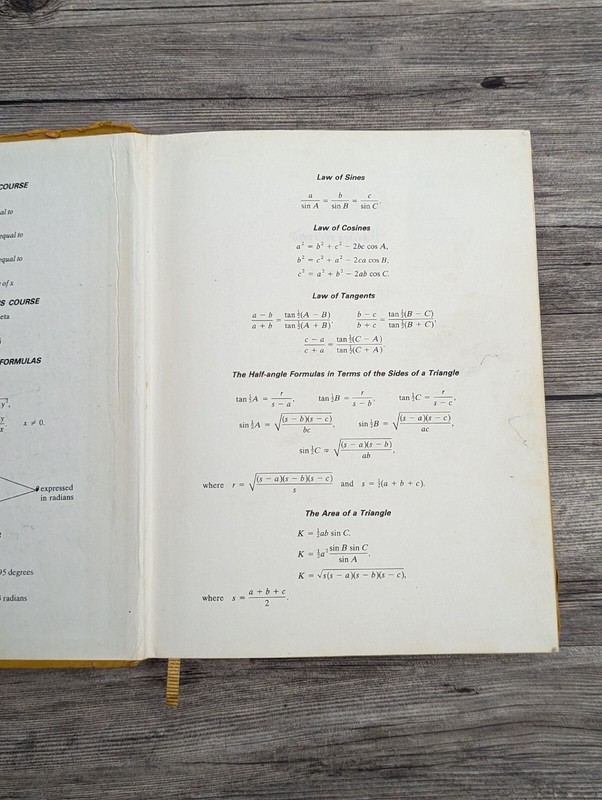 COURSE
al to
equal to
equal to
of x
S COURSE
eta
FORMULAS
x ≠ 0.
expressed
in radians
95 degrees
radians
Law of Sines
a/sin A = b/sin B = c/sin C.
Law of Cosines
a² = b² + c² − 2bc cos A,
b² = c² + a² − 2ca cos B,
c² = a² + b² − 2ab cos C.
Law of Tangents
(a − b)/(a + b) = tan ½(A − B)/tan ½(A + B), (b − c)/(b + c) = tan ½(B − C)/tan ½(B + C),
(c − a)/(c + a) = tan ½(C − A)/tan ½(C + A).
The Half-angle Formulas in Terms of the Sides of a Triangle
tan ½A = r/(s − a), tan ½B = r/(s − b), tan ½C = r/(s − c),
sin ½A = √((s − b)(s − c)/bc), sin ½B = √((s − a)(s − c)/ac),
sin ½C = √((s − a)(s − b)/ab),
where r = √((s − a)(s − b)(s − c)/s) and s = ½(a + b + c).
The Area of a Triangle
K = ½ab sin C,
K = ½a² sin B sin C/sin A,
K = √(s(s − a)(s − b)(s − c)),
where s = (a + b + c)/2.